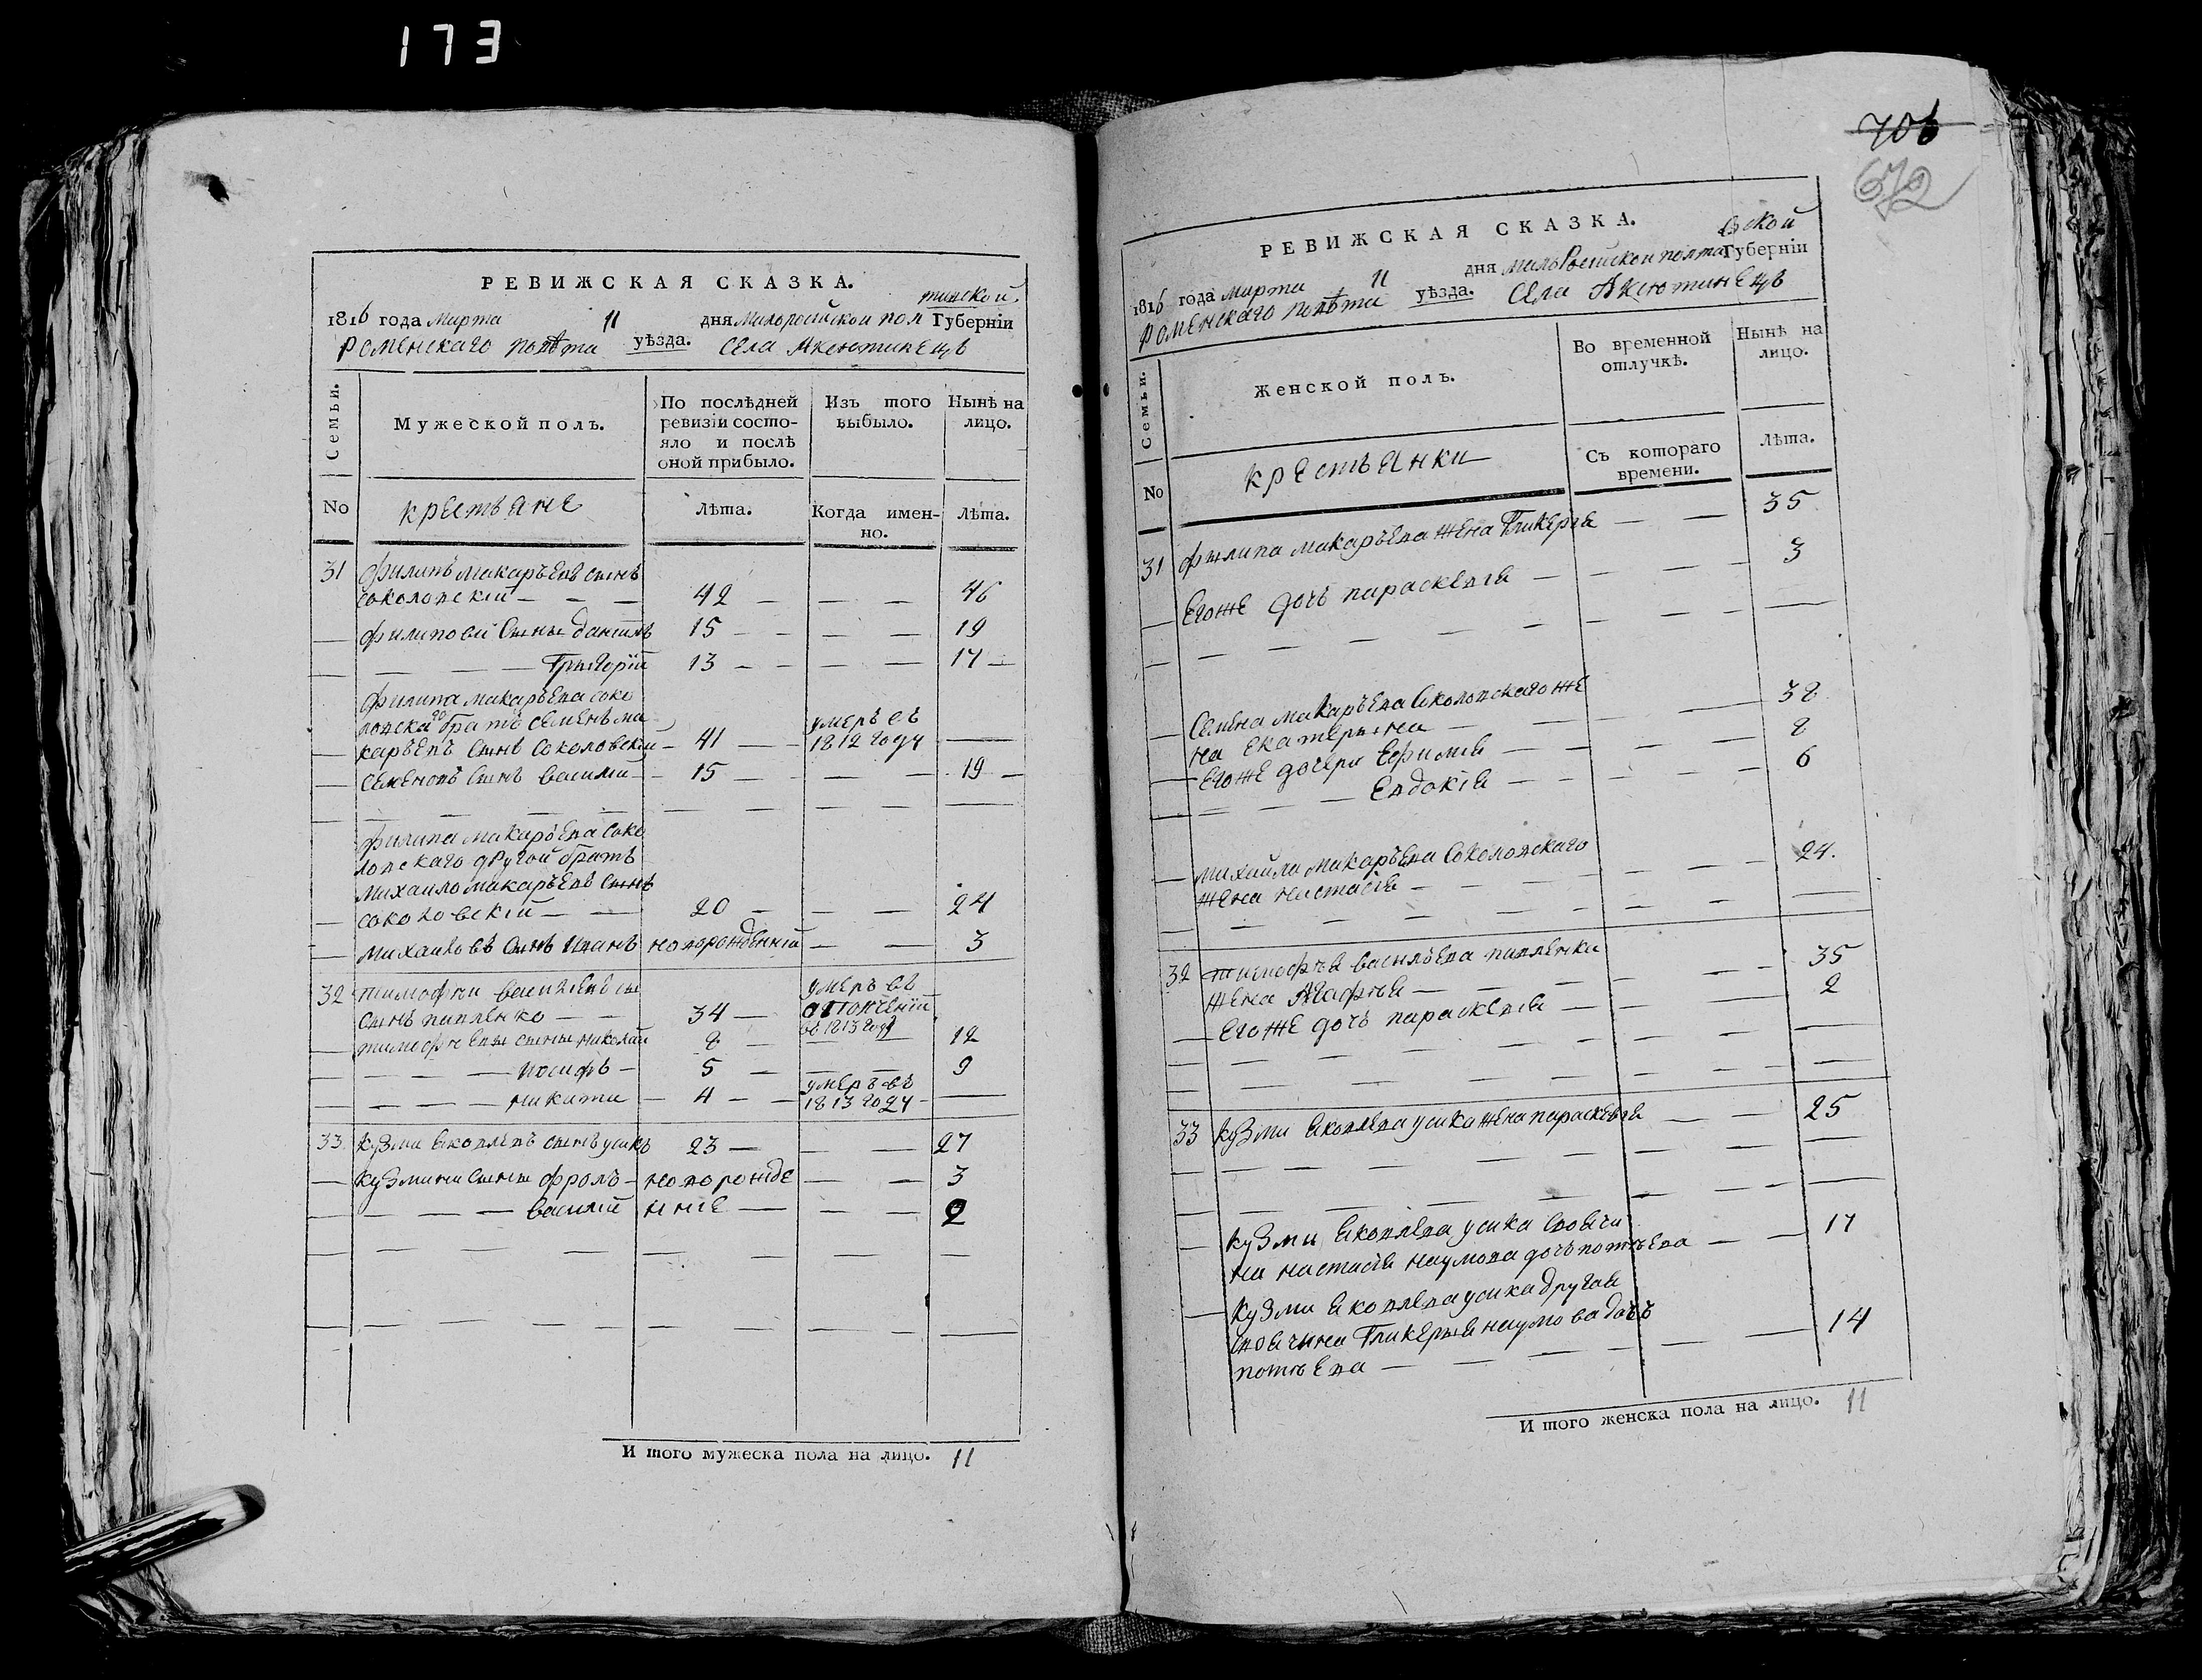 173
706
672
РЕВИЖСКАЯ СКАЗКА.
тавской
1816 года марта 11 дня малоросійской пол Губерніи
Роменскаго повѣта уѣзда. села Аксютинецъ
Семьи.
Мужеской полъ.
По послѣдней
ревизіи состо-
яло и послѣ
оной прибыло.
Изъ того
выбыло.
Нынѣ на
лицо.
No
крестьяне
лѣта.
Когда имен-
но.
лѣта.
31 Филипъ макарьевъ сынъ
соколовскій — — — 42 — — — 46
— филипови сыны данилъ 15 — — — — 19
— — — — Григорій 13 — — — — 17 —
филипа макарьева соко
ловскаго братъ семенъ ма
карьевъ сынъ соколовскій — 41 — умеръ въ
1812 году —
— семеновъ сынъ василий — 15 — — — 19 —
филипа макарьева соко
ловскаго другой братъ
михаило макарьевъ сынъ
— соколовскій — — 20 — — — 24
— михайловъ сынъ иванъ новорожденній — — 3
32 тимофѣй васильевъ сы
сынъ павленко — — 34 — умеръ въ
ополченіи
въ 1813 году
— тимофѣевы сыны николай 8 — — 12
— — — — иосифъ — 5 — — — 9
— — — — никита — 4 — — умеръ въ
1813 году —
33 кузма яковлевъ сынъ усикъ 23 — — — 27
— кузмини сыны фролъ — новорожде — — 3
— — — — василій нніе — — — 2
И того мужеска пола на лицо. 11
РЕВИЖСКАЯ СКАЗКА.
вской
1816 года марта 11 дня малоросійской полта Губерніи
Роменскаго повѣта уѣзда. села Аксютинецъ
Семьи.
Женской полъ.
Во временной
отлучкѣ.
Нынѣ на
лицо.
No
крестьянки
Съ котораго
времени.
лѣта.
31 филипа макарьева жена Гликерія — — 35
— егоже дочь параскевія — — — — 3
— семена макарьева соколовскаго же
на екатерына — — — 38
— егоже дочери ефимія — — — 8
— — — — евдокія — — — 6
— михайла макарьева соколовскаго
жена настасія — — — 24.
32 тимофѣя васильева павленка
жена Агафія — — — 35
— егоже дочь параскевія — — 2
33 кузми яковлева усика жена параскевія — — 25
— кузми яковлева усика своячи
на настасія наумова дочь потѣева — — 17
— кузми яковлева усика другая
своячина Гликерыя наумова дочь
потѣева — — — — 14
И того женска пола на лицо. 11